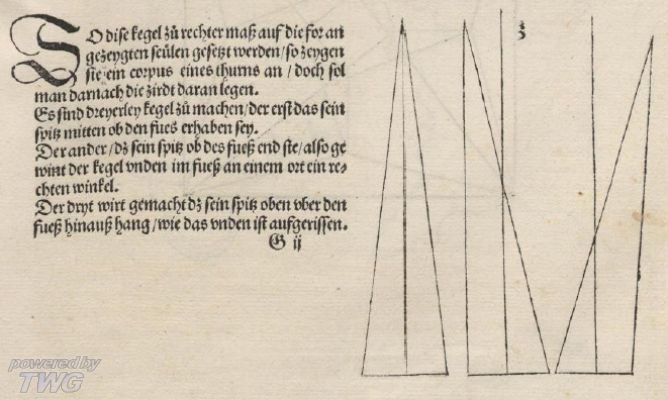 SO dise kegel zů rechter maß auf die for an
gezeygten seülen gesetzt werden / so zeygen
sie ein corpus eines thurns an / doch sol
man darnach die zirdt daran legen.
Es sind dreyerley kegel zů machen / der erst das sein
spitz mitten ob den fues erhaben sey.
Der ander / dz sein spitz ob des fueß end ste / also ge
wint der kegel vnden im fueß an einem ort ein re-
chten winkel.
Der dryt wirt gemacht dz sein spitz oben vber den
fueß hinauß hang / wie das vnden ist aufgerissen.
G ij
3
powered by
TWG